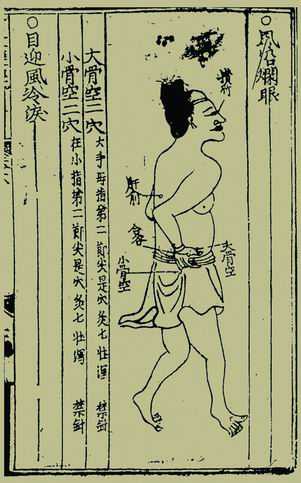 ○風沿爛眼
攢竹
合谷
大骨空
小骨空
大骨空二穴 大手母指第二節尖是穴灸七壯 禁針
小骨空二穴 在小指第二節尖是穴灸七壯 禁針
○目迎風冷淚